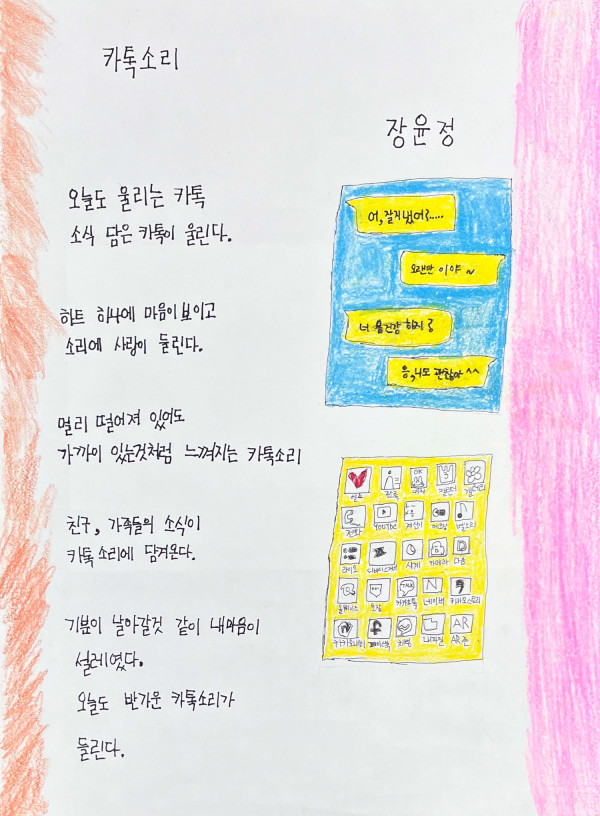 카톡소리
장윤정
오늘도 울리는 카톡
소식 담은 카톡이 울린다.
하트 하나에 마음이 보이고
소리에 사랑이 들린다.
멀리 떨어져 있어도
가까이 있는것처럼 느껴지는 카톡소리
친구, 가족들의 소식이
카톡 소리에 담겨온다.
기분이 날아갈것 같이 내마음이
설레였다.
오늘도 반가운 카톡소리가
들린다.
어, 잘지냈어?.....
오랜만 이야 ~
너 몸건강 하지?
응, 나도 괜찮아 ^^
갤러리
전화 YouTube 계산기
라디오 시계 카메라 다음
카카오톡 네이버 카카오스토리
N
AR
AR존